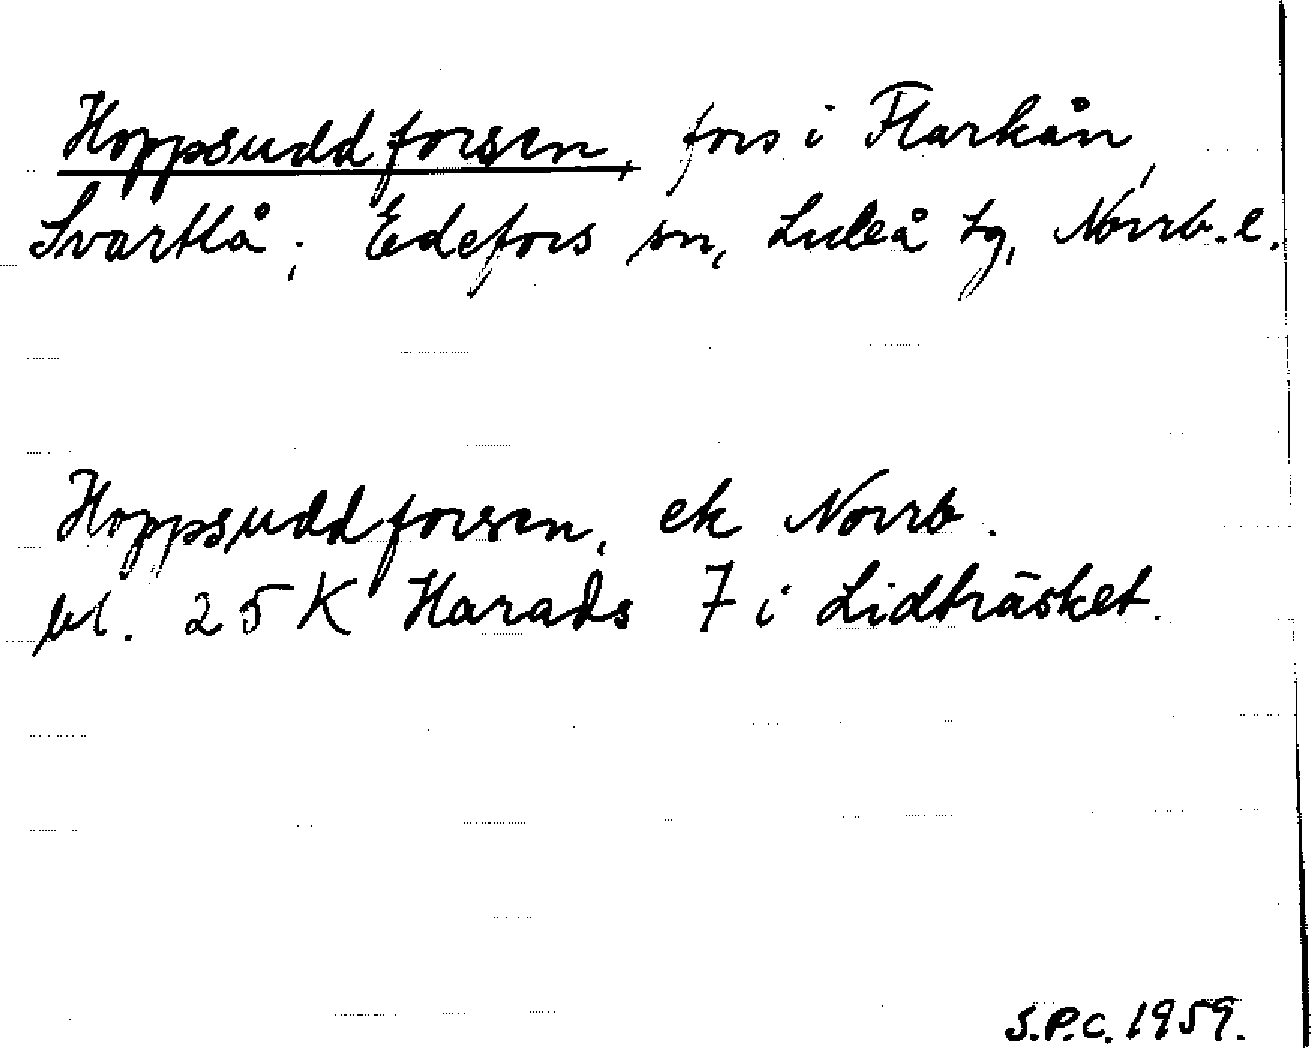 Hoppsuddforsen, fors i Flarkån,
Svartlå; Edefors sn, Luleå tg, Norrb.l.
Hoppsuddforsen, ek Norrb.
bl. 25 K Harads 7 i Lidträsket.
S.P.C. 1959.